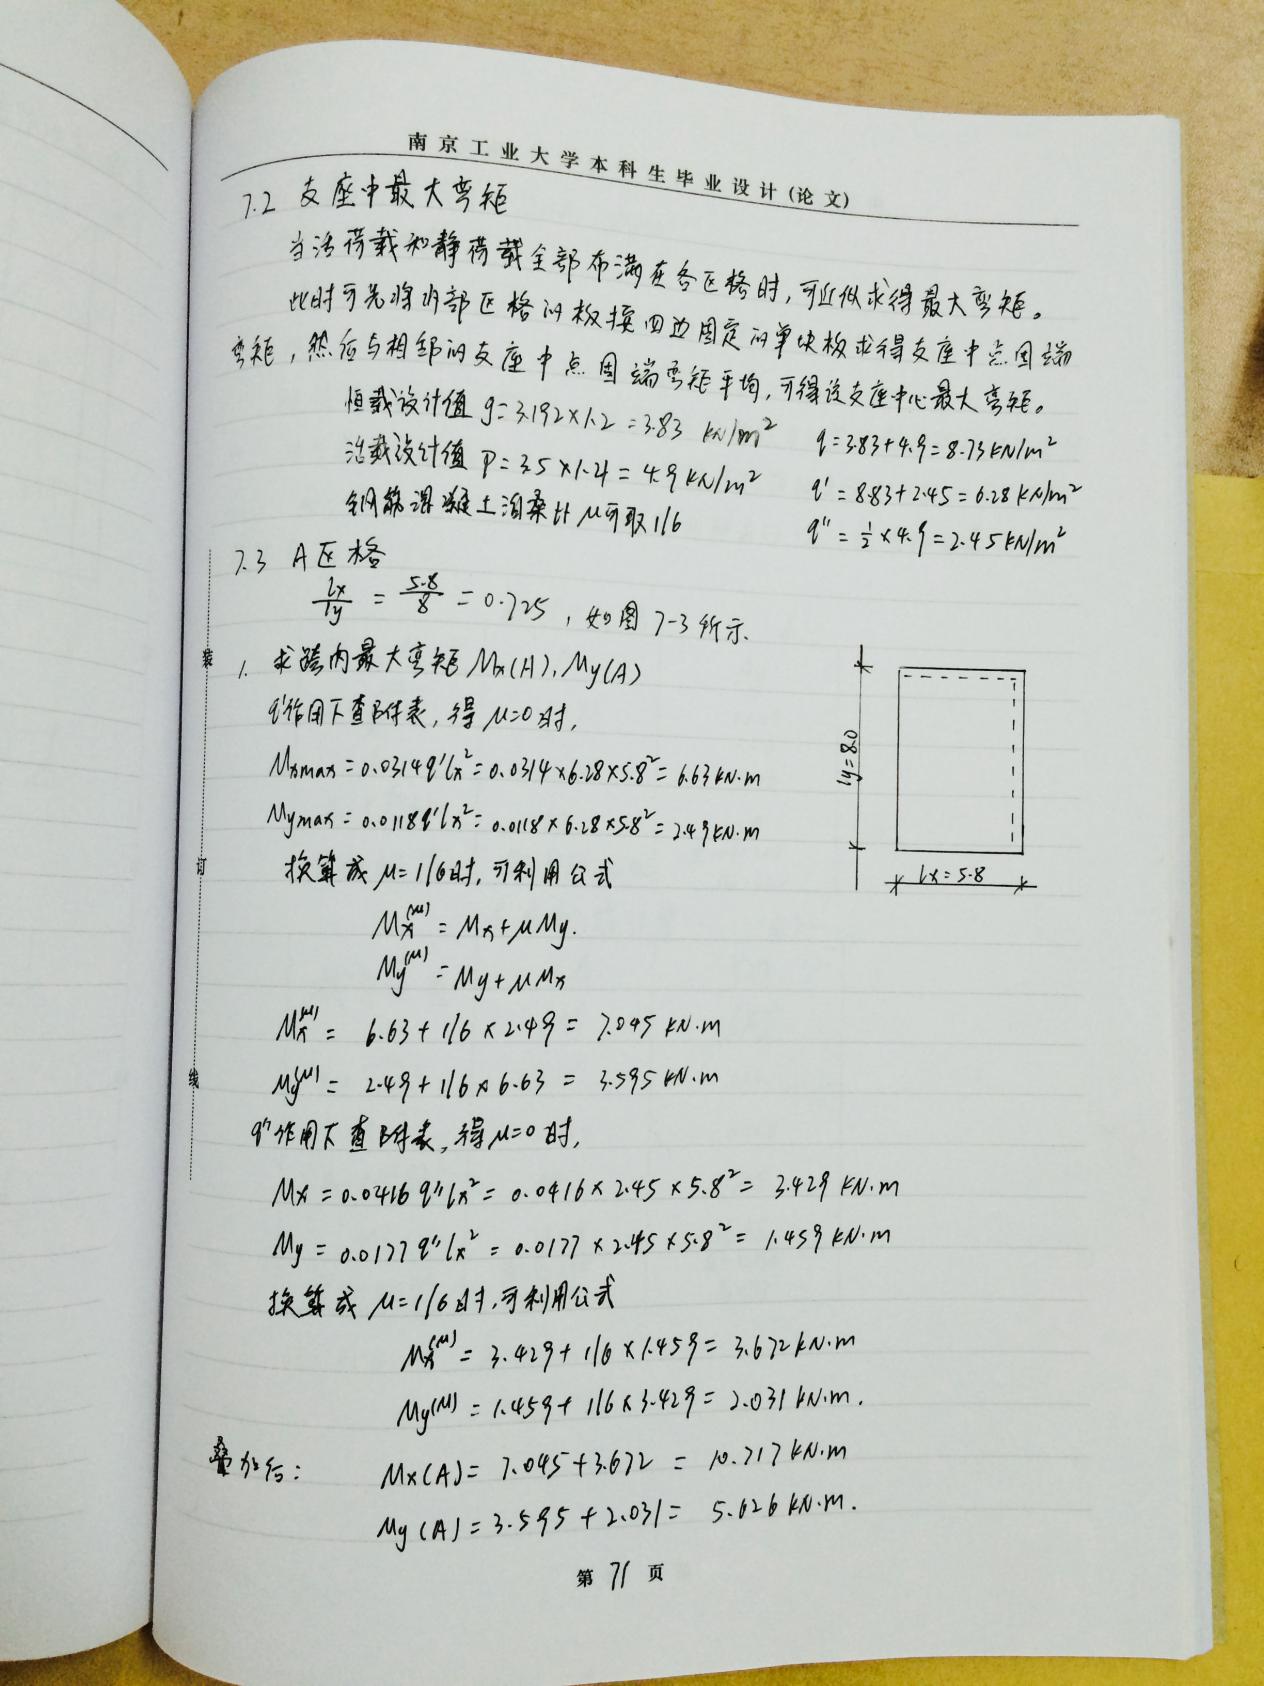 南京工业大学本科生毕业设计(论文)
7.2 支座中最大弯矩
当活荷载和静荷载全部布满在各区格时,可近似求得最大弯矩。
此时可先将内部区格的板按四边固定的单块板求得支座中点固端
弯矩,然后与相邻的支座中点固端弯矩平均,可得该支座中心最大弯矩。
恒载设计值 g=3.192×1.2=3.83 kN/m² q=3.83+4.9=8.73kN/m²
活载设计值 P=3.5×1.4=4.9kN/m² q'=8.83+2.45=6.28kN/m²
钢筋混凝土泊桑比μ可取1/6 q''=½×4.9=2.45kN/m²
7.3 A区格
lx/ly = 5.8/8 = 0.725,如图7-3所示.
1. 求跨内最大弯矩Mx(A),My(A)
q'作用下查附表,得μ=0时,
Mxmax=0.0314q'lx²=0.0314×6.28×5.8²=6.63kN·m
Mymax=0.0118q'lx²=0.0118×6.28×5.8²=2.49kN·m
换算成μ=1/6时,可利用公式
Mx(μ)=Mx+μMy.
My(μ)=My+μMx
Mx(μ)= 6.63+1/6×2.49= 7.045 kN·m
My(μ)= 2.49+1/6×6.63 = 3.595kN·m
q''作用下查附表,得μ=0时,
Mx=0.0416q''lx²=0.0416×2.45×5.8²= 3.429 kN·m
My=0.0177q''lx²=0.0177×2.45×5.8²= 1.459kN·m
换算成μ=1/6时,可利用公式
Mx(μ)=3.429+1/6×1.459=3.672kN·m
My(μ)=1.459+1/6×3.429=2.031kN·m.
叠加后: Mx(A)=7.045+3.672 = 10.717kN·m
My(A)=3.595+2.031= 5.626kN·m.
ly=8.0
lx=5.8
装
订
线
第 71 页